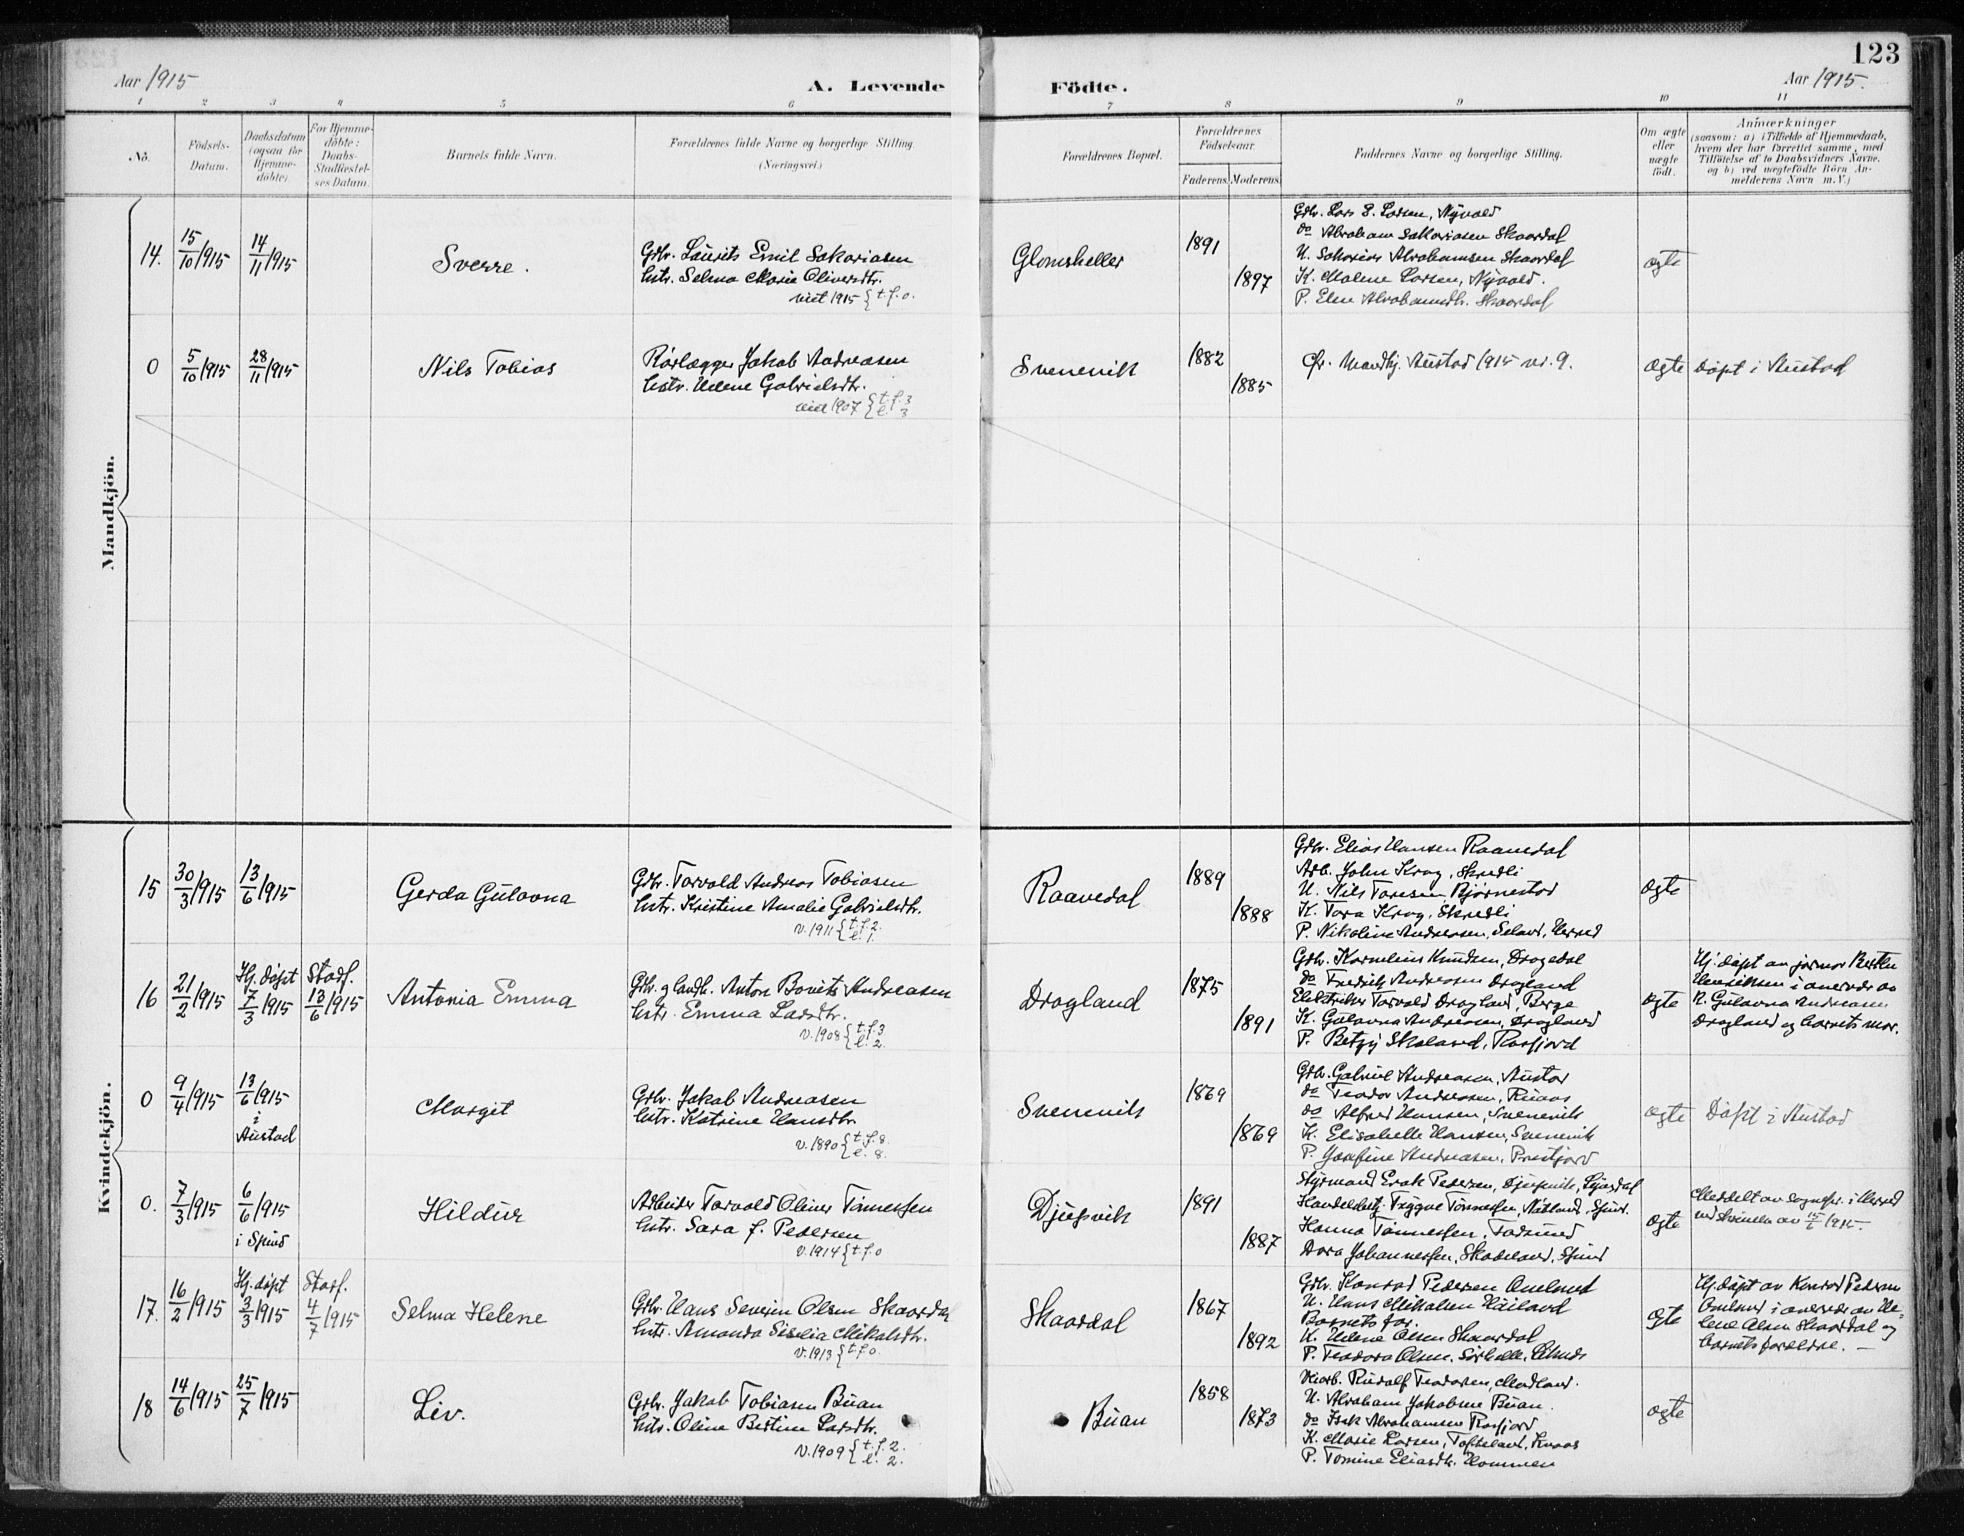 123
Aar 1915
A. Levende
Födte.
Aar 1915.
1 2 3 4 5 6 7 8 9 10 11
No.
Födsels-
Datum.
Daabsdatum
(ogsaa for
Hjemme-
döbte).
For Hjemme-
döbte:
Daabs-
Stadfæstel-
ses Datum.
Barnets fulde Navn.
Forældrenes fulde Navne og borgerlige Stilling.
(Næringsvei.)
Forældrenes Bopæl.
Forældrenes
Födselsaar.
Faderens.
Moderens.
Faddernes Navne og borgerlige Stilling.
Om ægte
eller
uægte
födt.
Anmærkninger
(saasom: a) i Tilfælde af Hjemmedaab,
hvem der har forrettet samme, med
Tilföielse af to Daabsvidners Navne,
og b) ved uægtefödte Börn An-
melderens Navn m.V.)
Mandkjön.
14.
15/10 1915
14/11 1915
Sverre.
Gdbr. Laurits Emil Sakariasen
hstr. Selma Marie Oliversdtr.
viet 1915 { t.f. 0.
Glomsheller
1891
1897
Gdbr. Lars E. Larsen, Nyvold
do Abraham Sakariasen Skaardal
U. Sakarias Abrahamsen Skaardal
K. Malene Larsen, Nyvold.
P. Elen Abrahamsdtr. Skaardal
ægte
0
5/10 1915
28/11 1915
Nils Tobias
Rørlægger Jakob Andreasen
hstr. Helene Gabrielsdtr.
viet 1907 { t.f. 3
l. 3
Svenevik
1882
1885
Cfr. Mandkj. Austad 1915 nr. 9.
ægte
Døpt i Austad
Kvindekjön.
15
30/3 1915
13/6 1915
Gerda Gulovna
Gdbr. Torvald Andreas Tobiasen
hstr. Kristine Amalie Gabrielsdtr.
v. 1911 { t.f. 2.
l. 1.
Raavedal
1889
1888
Gdbr. Elias Hansen Raavedal
Arb. John Krog, Skredli
U. Nils Toresen, Bjørnestad
K. Tora Krog, Skredli
P. Nikoline Andreasen, Herred
ægte
16
21/2 1915
Hj. døpt
7/3 1915
Stadf.
13/6 1915
Antonia Emma
Gdbr. g landh. Anton Andreasen
hstr. Emma Larsdtr.
v. 1908 { t.f. 3
l. 2.
Dragland
1875
1891
Gdbr. Kornelius Knudsen, Dragedal
do Fredrik Andreasen Dragland
Elektriker Torvald Dragland, Berge
K. Gulovna Andreasen, Dragland
P. Betzy Skoland, Rosfjord
ægte
Hj. døpt av jormor
Henriksen i overvær av
Gulovna Andreasen
Dragland og barnets mor.
0
9/4 1915
13/6 1915
i
Austad
Margit
Gdbr. Jakob Andreasen
hstr. Katrine Hansdtr.
v. 1890 { t.f. 8.
l. 8.
Svenevik
1869
1869
Gdbr. Gabriel Andreasen, Austad
do Teodor Andreasen,
do Alfred Hansen, Svenevik
K. Elisabelle Hansen, Svenevik
P. Josefine Andreasen,
ægte
Døpt i Austad
0.
7/3 1915
6/6 1915
i Spind
Hildur
Arbeider Torvald Oliver Tønnessen
hstr. Sara J. Pedersen
v. 1914 { t.f. 0
Djupvik
1891
1887
Styrmand Pedersen, Djupvik,
Handelsbetj. Trygve Tønnessen, Spind.
Hanna Tønnessen,
Dora Johannessen, Skadeland, Spind
ægte
Meddelt av sognepr. i Herred
ved skrivelse av 15/6 1915
17.
16/2 1915
Hj. døpt
3/3 1915
Stadf.
4/7 1915
Selma Helene
Gdbr. Hans Severin Olsen Skaardal
hstr. Amanda Sisilia Mikalsdtr.
v. 1913 { t.f. 0.
Skaardal
1867
1892
Gdbr. Konrad Pedersen Omlund
U. Hans Mikalsen Häiland
Barnets far.
K. Helene Olsen Skaardal
P. Teodora Olsen,
ægte
Hj. døpt av Konrad Pedersen
Omlund i overvær av He-
lene Olsen Skaardal og
barnets foreldre.
18
14/6 1915
25/7 1915
Liv.
Gdbr. Jakob Tobiasen Büan
hstr. Oline Bertine Larsdtr.
v. 1909 { t.f. 2.
l. 2.
Büan
1858
1873
Rudolf Teodorsen,
U. Abraham Jakobsen Büan.
do Isak Abrahamsen Rosfjord
K. Marie Larsen,
P. Tomine Eliasdtr. Hommen
ægte